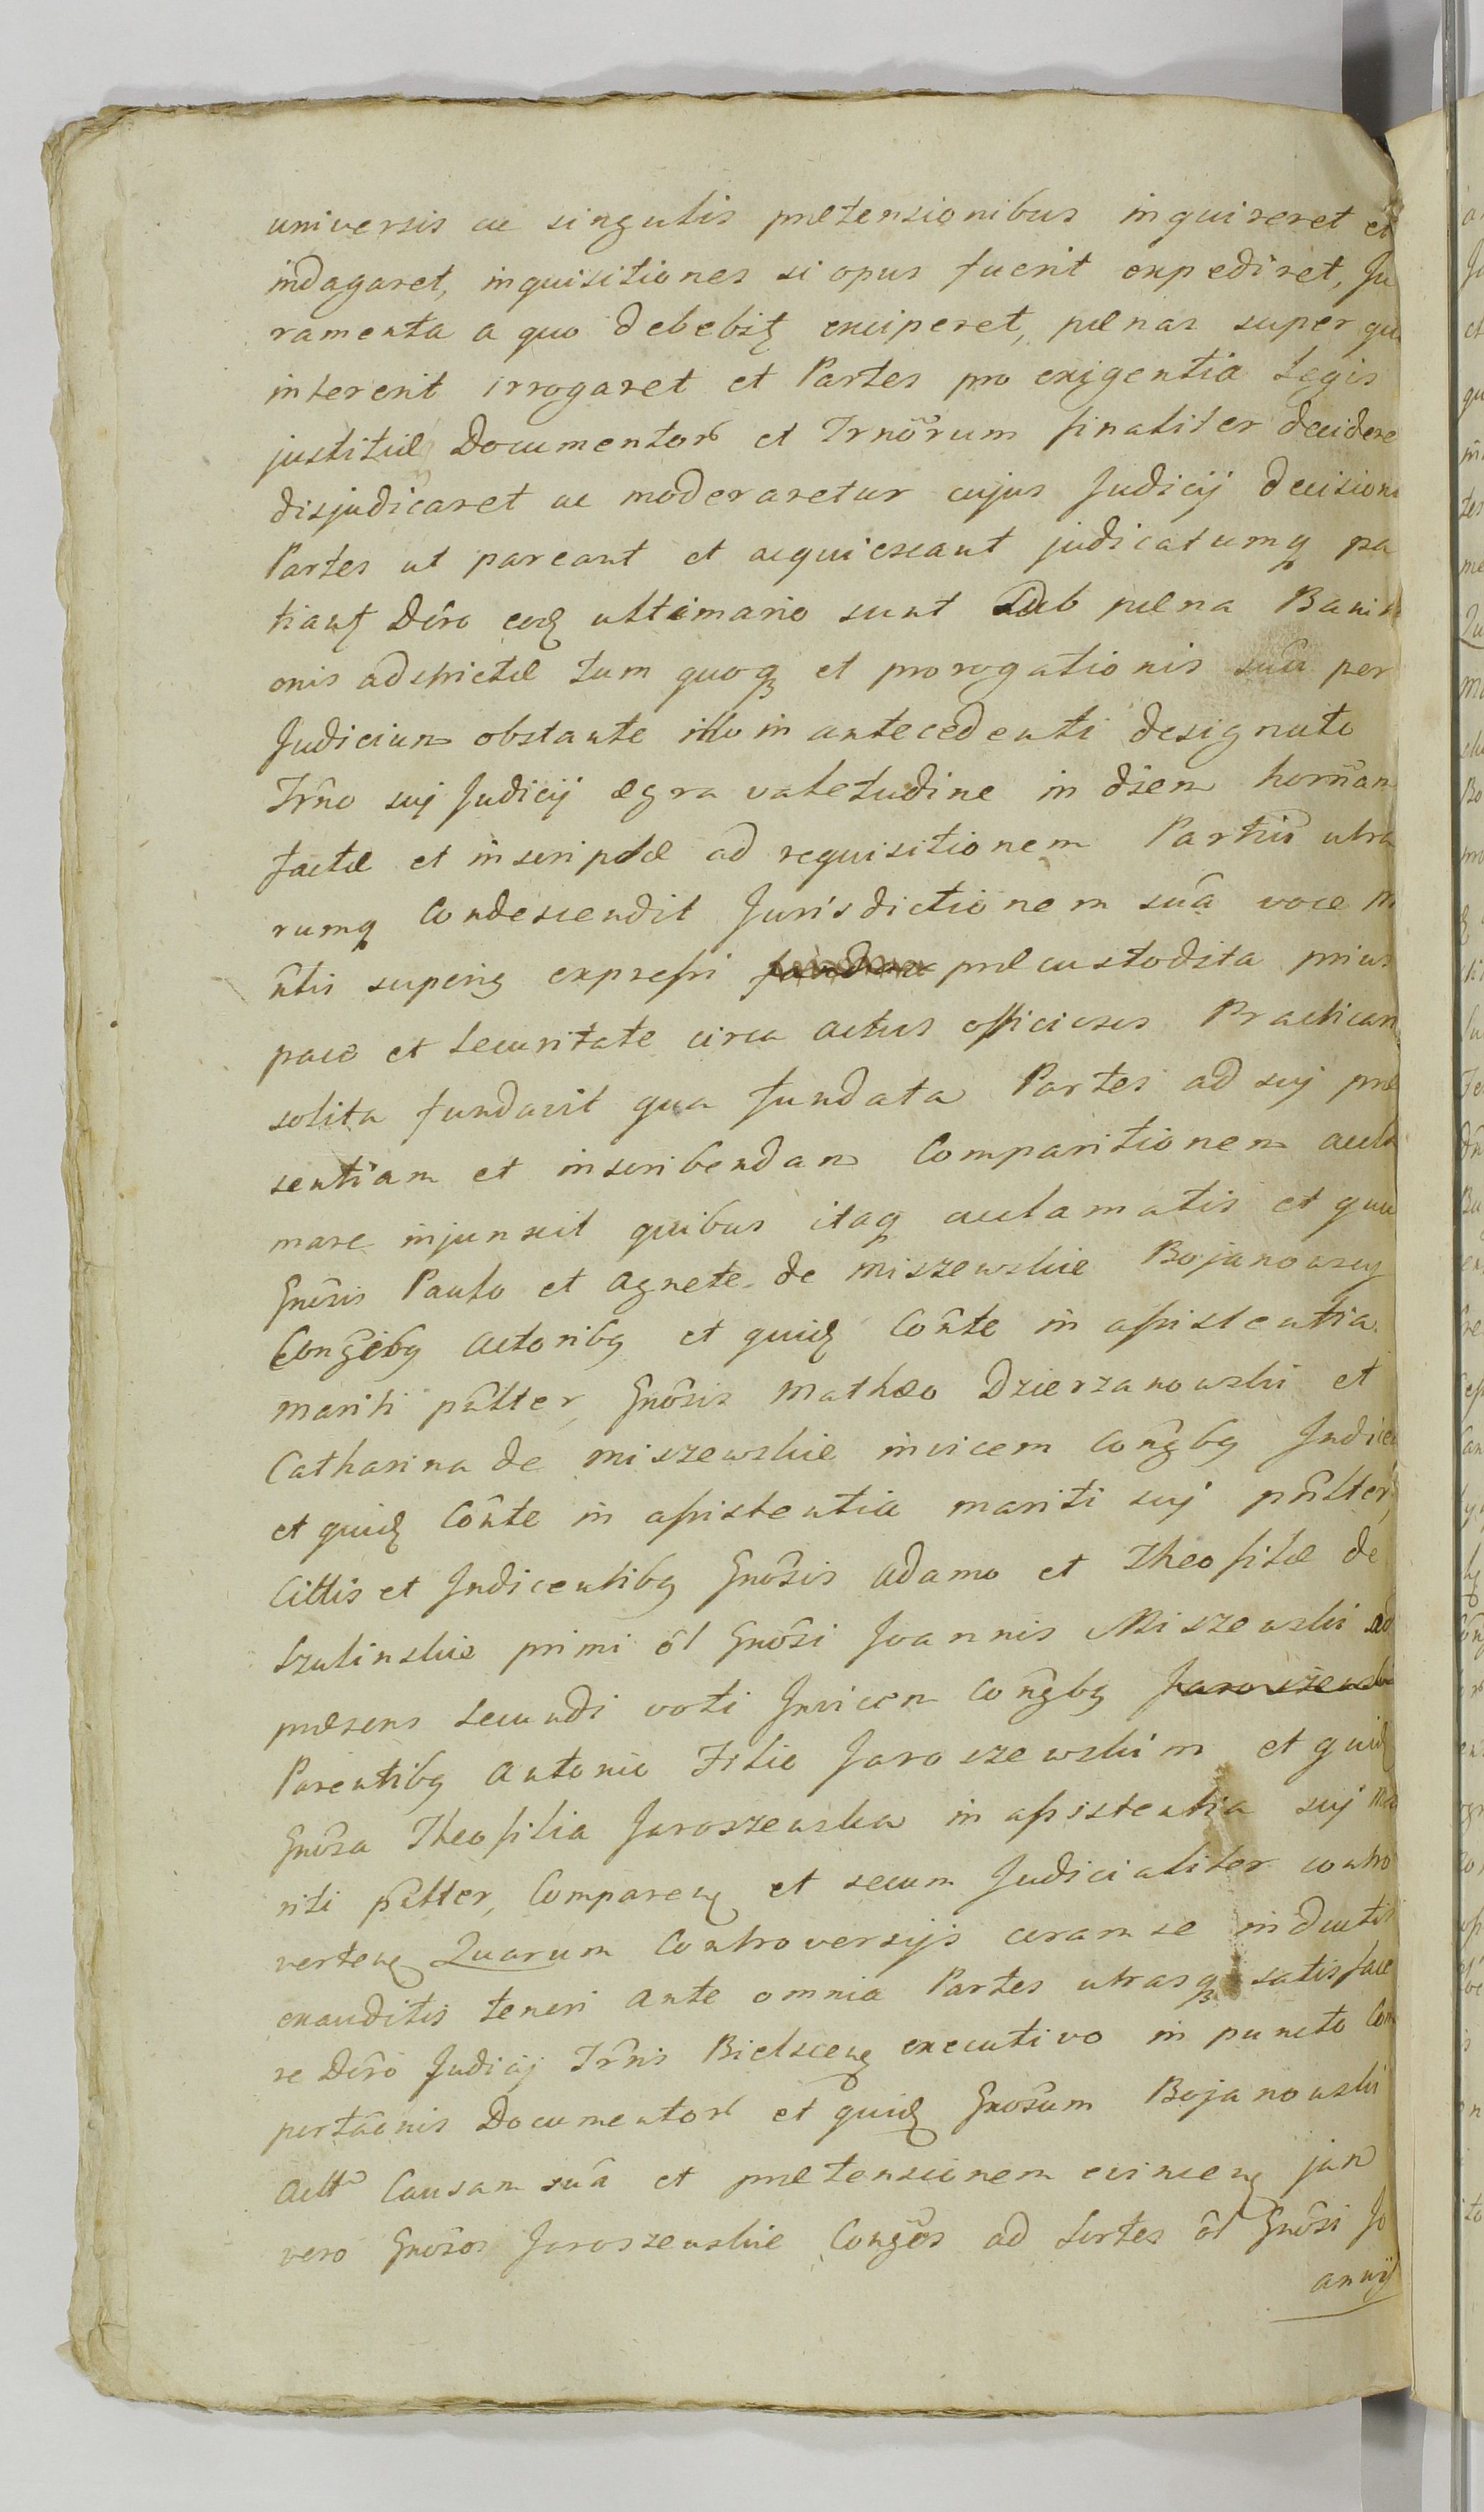 universis ac singulis prætensionibus inquireret et
indagaret, inquisitiones si opus fuerit expediret, Ju
ramenta a quo debebitʒ exciperet, pænas super qu
intererit irrogaret et Partes pro exigentia Legis
justitiæ Documentor et Trnõrum finaliter decidere
disjudicaret ac moderaretur cujus Judicij decisioni
Partes ut pareant et acquiescant judicatumqʒ pa
tiantʒ Dẽro eodʒ ultimario sunt Sub pæna Bannit
onis adstrictæ tum quoqʒ et prorogationis suæ per
Judicium obstante illo in antecedenti designato
Trñno suj Judicij ægra valetudine in diem hornãn
factæ et inscriptæ ad requisitionem Partiũ utra
rumqʒ Condescendit Jurisdictionem suã voce M
ñtis superiꝯ expressi præcustodita prius
pace et Securitate circa actus officiosos Practicari
solita fundavit qua fundata Partes ad suj præ
sentiam et inscribendam Comparitionem accla
mare injunxit quibus itaqʒ acclamatis et qua
Gnõsis Paulo et Agnete de Miszewskie Bojanowscÿ
Conjgibꝯ Actoribꝯ et quidʒ Cõnte in assistentia
Mariti pñlter, Gnõsis Mathæo Dzierzanowski et
Catharina de Miszewskie invicem Conjgbꝯ Indicen
et quidʒ Cõnte in assistentia mariti suj pñlter,
Cittis et Indicentibꝯ Gnõsis Adamo et Theofilæ de
Szulinskie primi ol Gnõsi Joannis Miszewski ad
præsens Secundi voti Invicem Conjgbꝯ Jaroszewski
Parentibꝯ Antonio Filio Jaroszewskim et quidʒ
Gnõsa Theofilia Jaroszewska in assistentia suj Ma
riti pñlter, Comparenʒ et secum Judicialiter contro
vertenʒ Quarum Controversijs coram se inductis
exauditis teneri ante omnia Partes utrasqʒ satisface
re Dẽro Judicij Trñis Bielscenʒ executivo in puncto Com
portãonis Documentor et quidʒ Gnõsum Bojanowski
Actt Causam suã et prætensionem evincenʒ jam
vero Gnõsos Jaroszewskie Conjges ad Sortes ol Gnõsi Jo
annis